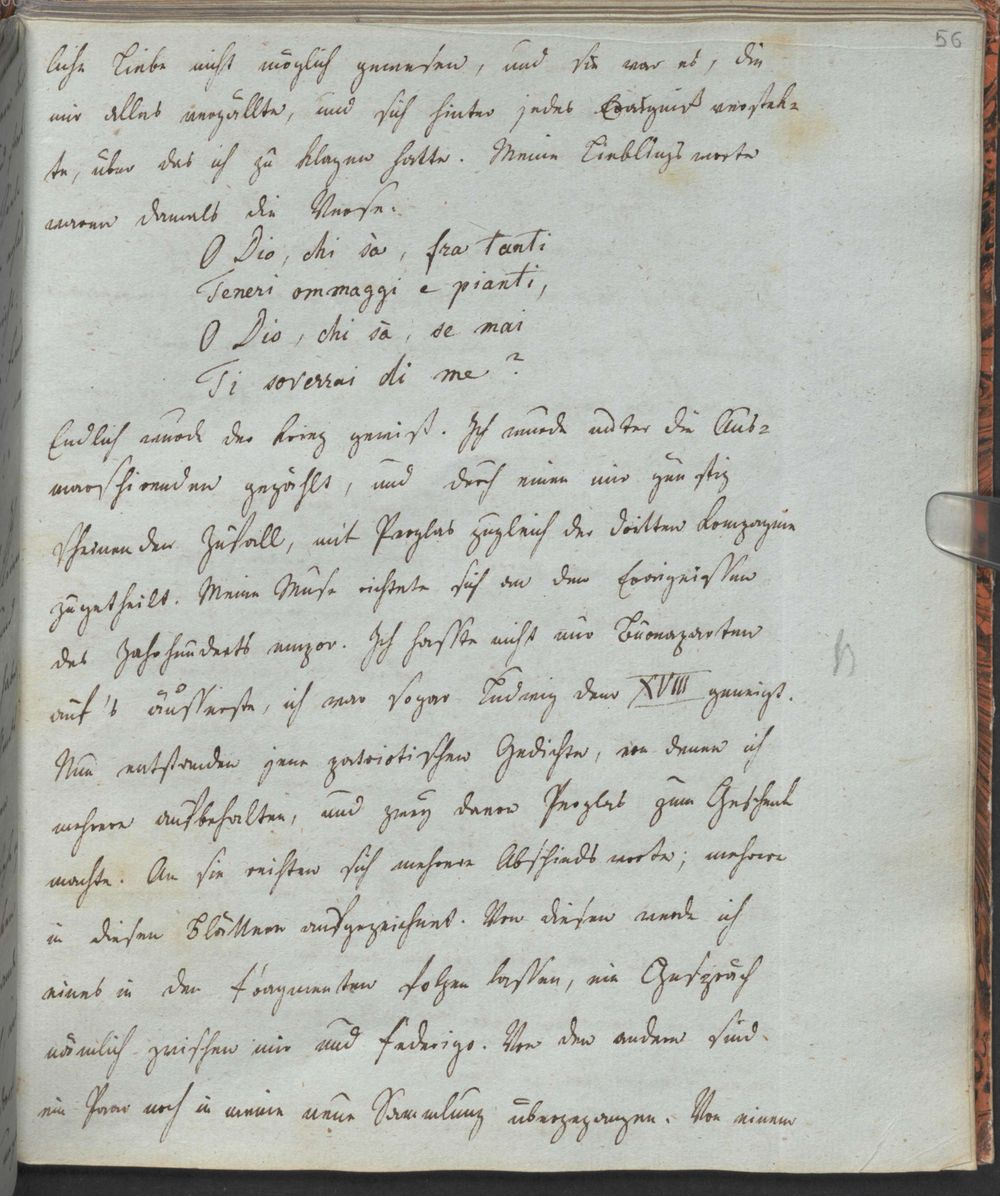 56
liche Liebe nicht möglich gewesen, und sie war es, die
mir alles vergällte, und sich hinter jedes Eräigniß verstek=
te, über das ich zu klagen hatte. Meine Lieblingsworte
waren damals die Verse:
O Dio, chi sà, fra tanti
Teneri ommaggi e pianti,
O Dio, chi sà, se mai
Ti soverrai di me?
Endlich wurde der Krieg gewiß. Ich wurde unter die Aus=
marschirenden gezählt, und durch einen mir günstig
scheinenden Zufall, mit Perglas zugleich der dritten Kompagnie
zugetheilt. Meine Muse richtete sich an den Eräignissen
des Jahrhunderts empor. Ich hasste nicht nur Buonaparten
auf's äusserste, ich war sogar Ludwig dem XVIII geneigt.
Nun entstanden jene patriotischen Gedichte, von denen ich
mehrere aufbehalten, und zwey davon Perglas zum Geschenk
machte. An sie reihten sich mehrere Abschiedsworte; mehrere
in diesen Blättern aufgezeichnet. Von diesen werde ich
eines in den Fragmenten folgen lassen, ein Gespräch
nämlich zwischen mir und Federigo. Von den andern sind
ein Paar noch in meine neue Sammlung übergegangen. Von einem